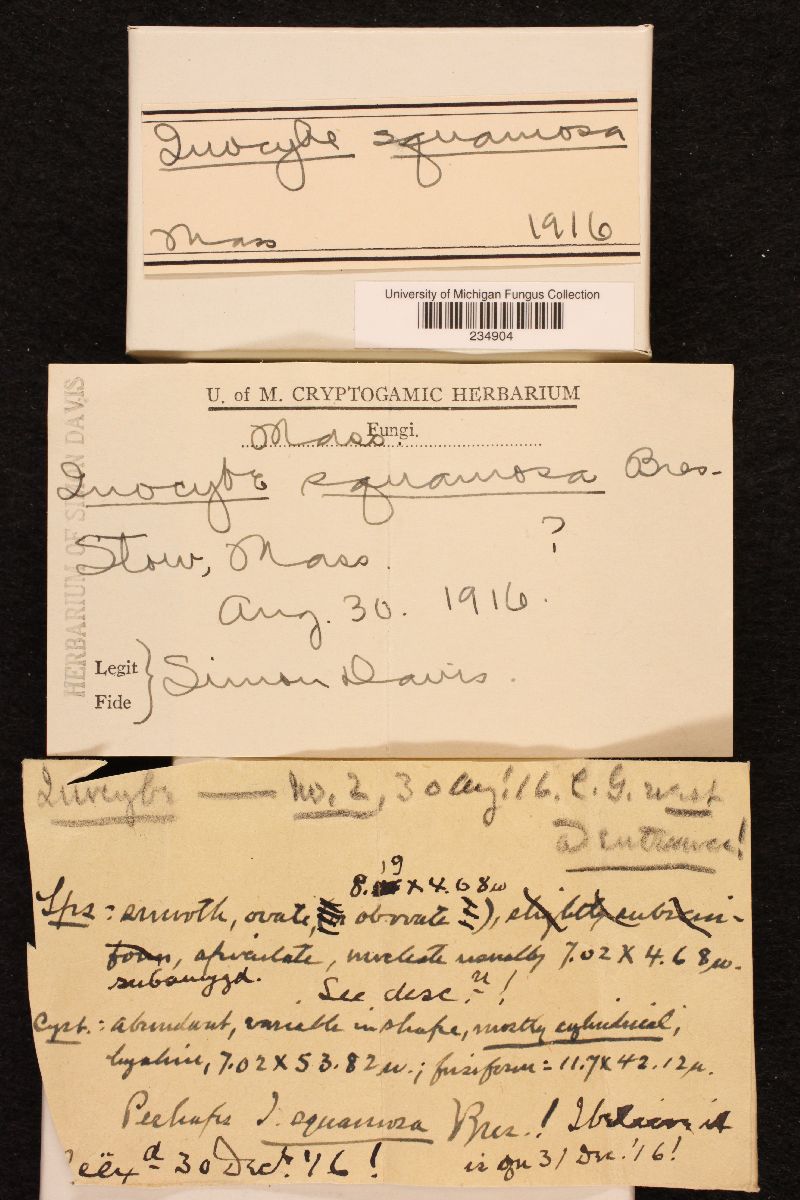 Inocybe squamosa
Mass 1916
University of Michigan Fungus Collection
234904
HERBARIUM OF SIMON DAVIS
U. of M. CRYPTOGAMIC HERBARIUM
Fungi.
Mass.
Inocybe squamosa Bres-
Stow, Mass. ?
Aug. 30. 1916.
Legit
Fide
Simon Davis.
Inocybe — No. 2, 30 Aug! 16. C. G. west
at entrance!
8.19 X 4.68µ
Sps = smooth, ovate, obovate ), slightly subreni-
form, apiculate, nucleate usually 7.02 X 4.68µ.
subamygd.
See desc.n!
Cyst. = abundant, variable in shape, mostly cylindrical,
hyaline, 7.02 X 53.82µ.; fusiform = 11.7 X 42.12µ.
Perhaps I. squamosa Bres.! I believe it
d 30 Dec. '16! is on 31 Dec. '16!